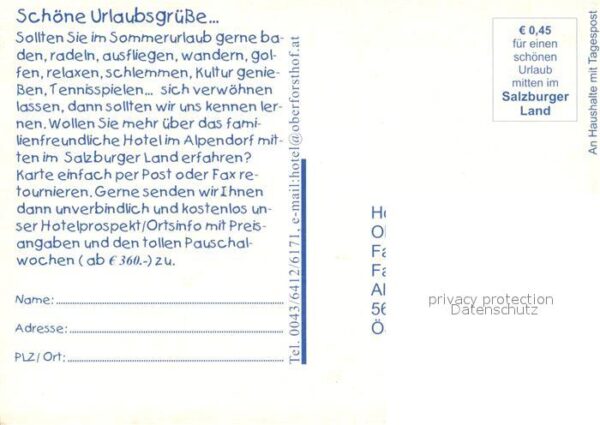 Schöne Urlaubsgrüße...
Sollten Sie im Sommerurlaub gerne ba-
den, radeln, ausfliegen, wandern, gol-
fen, relaxen, schlemmen, Kultur genie-
ßen, Tennisspielen... sich verwöhnen
lassen, dann sollten wir uns kennen ler-
nen. Wollen Sie mehr über das fami-
lienfreundliche Hotel im Alpendorf mit-
ten im Salzburger Land erfahren?
Karte einfach per Post oder Fax re-
tournieren. Gerne senden wir Ihnen
dann unverbindlich und kostenlos un-
ser Hotelprospekt/Ortsinfo mit Preis-
angaben und den tollen Pauschal-
wochen ( ab € 360.-) zu.
Name:
Adresse:
PLZ/Ort:
Tel. 0043/6412/6171, e-mail:hotel@oberforsthof.at
€ 0,45
für einen
schönen
Urlaub
mitten im
Salzburger
Land
An Haushalte mit Tagespost
Ho
Ob
Fa
Fa
Al
56
Ö
privacy protection
Datenschutz